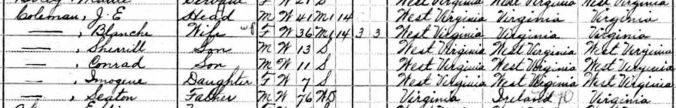 Servant F W 21 S West Virginia West Virginia West Virginia
Coleman, J. E. Head M W 41 M1 14 West Virginia Virginia Virginia
—, Blanche Wife F W 36 M1 14 3 3 West Virginia Virginia Virginia
—, Sherrill Son M W 13 S West Virginia West Virginia West Virginia
—, Conrad Son M W 11 S West Virginia West Virginia West Virginia
—, Imogene Daughter F W 7 S West Virginia West Virginia West Virginia
—, Seaton Father M W 76 Wd Virginia Ireland Virginia